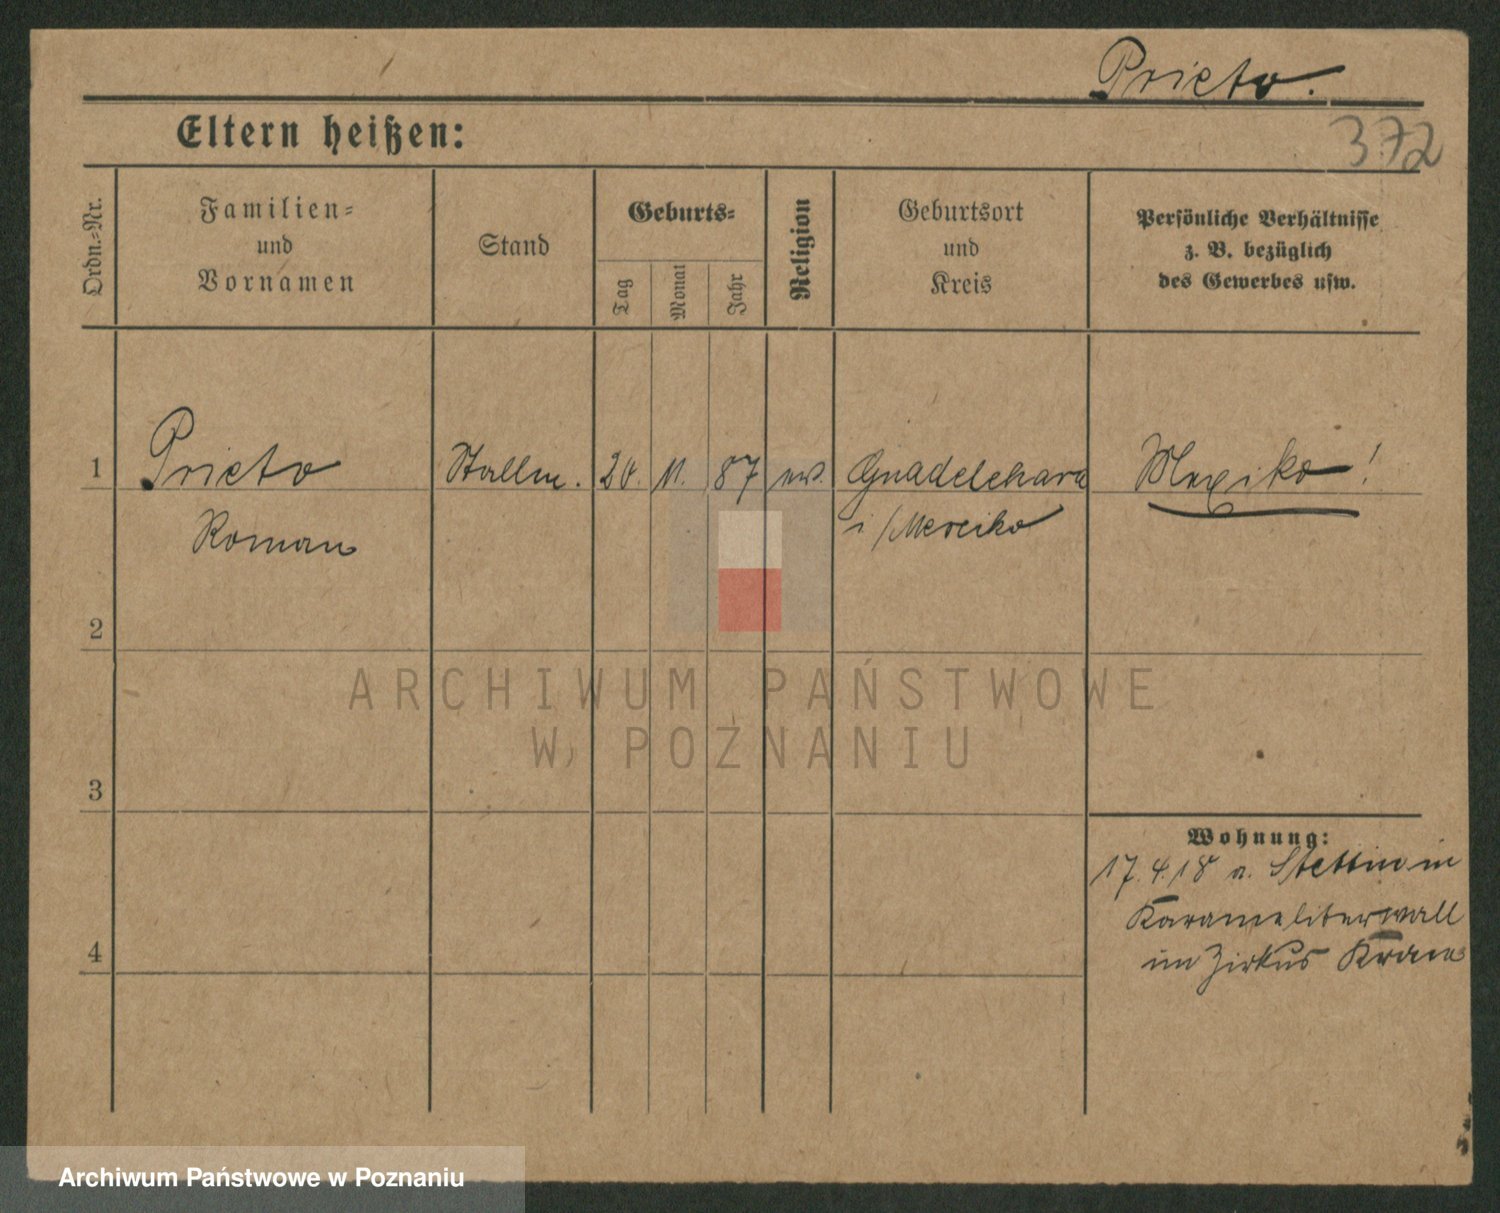 Prieto.
372
Eltern heißen:
Ordn.=Nr.
Familien=
und
Vornamen
Stand
Geburts=
Tag
Monat
Jahr
Religion
Geburtsort
und
Kreis
Persönliche Verhältnisse
z. B. bezüglich
des Gewerbes usw.
1 Prieto Stallm. 20. 11. 87 Guadelehara Mexiko!
Roman i/Mexiko
2
3
4
Wohnung:
17.4.18 a. Stettin in
Karameliterwall
im Zirkus
ARCHIWUM PAŃSTWOWE
W POZNANIU
Archiwum Państwowe w Poznaniu